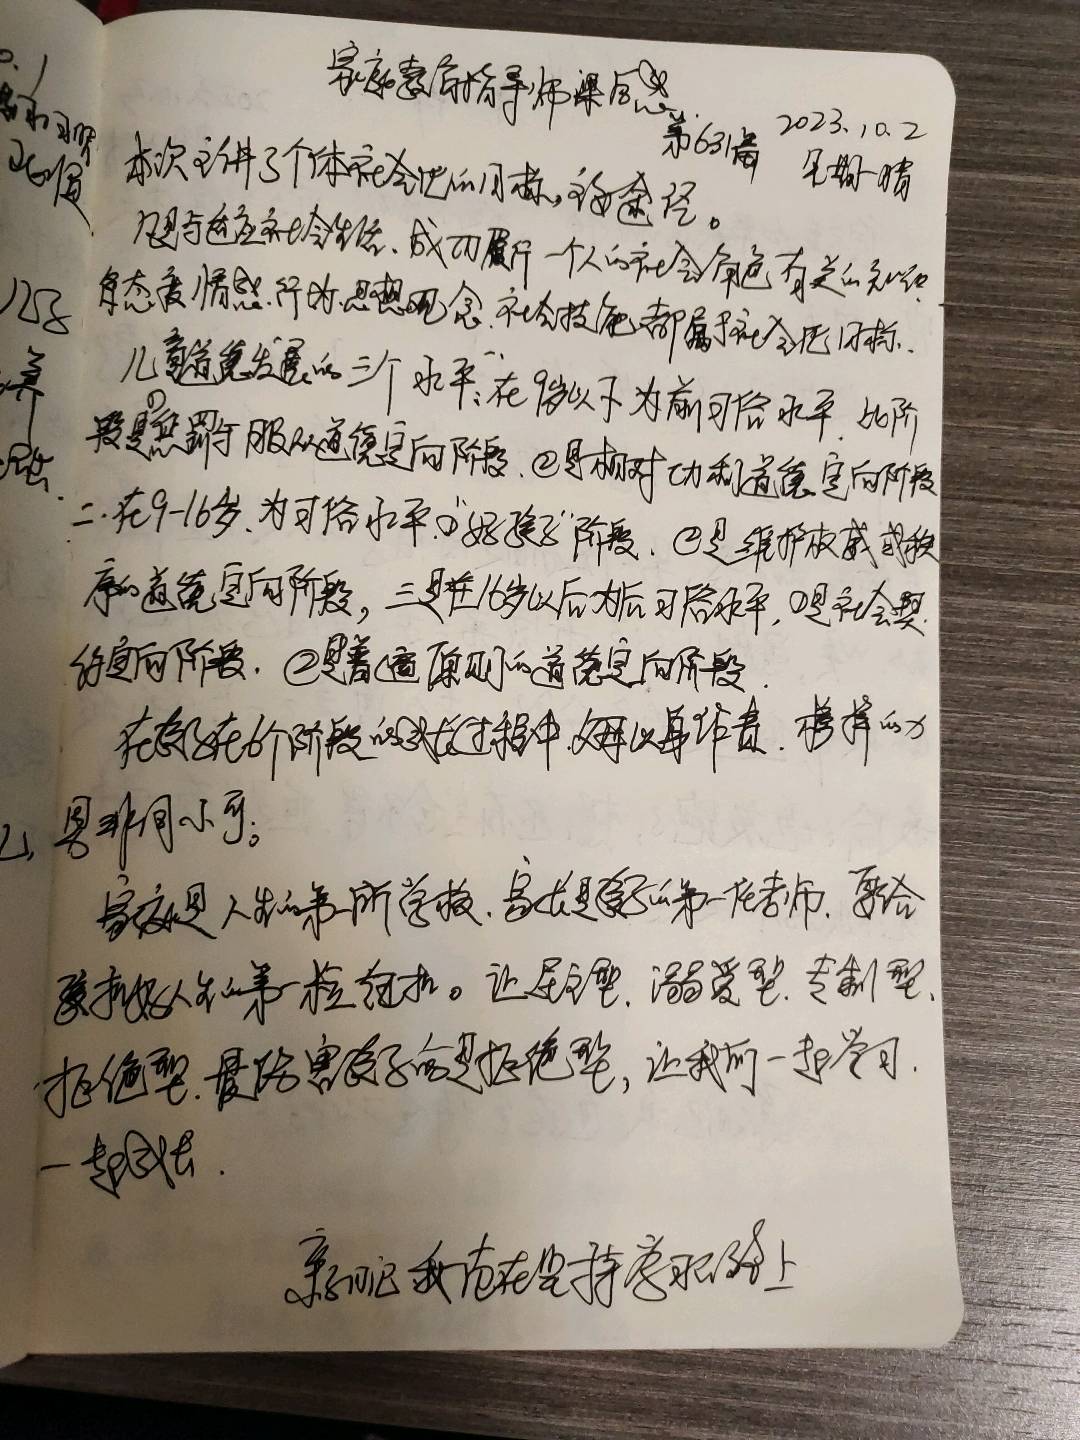 家庭教育指导师课后感
第631篇 2023.10.2
星期一晴
本次主讲了个体社会化的目标,主要途径。
凡是与适应社会生活、成功履行一个人的社会角色有关的知识
态度、情感、行为、思想观念、社会技能都属于社会化目标.
儿童道德发展的三个水平:在9岁以下为前习俗水平.此阶
段是①惩罚于服从道德定向阶段.②是相对功利道德定向阶段
二.在9-16岁.为习俗水平.①"好孩子"阶段.②是维护权威或秩
序的道德定向阶段,三是在16岁以后为后习俗水平,①是社会契
约定向阶段.②是普遍原则的道德定向阶段.
在孩子在6个阶段的成长过程中父母以身作责.榜样的力
是非同小可;
家庭是人生的第一所学校、家长是孩子的第一任老师.要给
孩扣好人生的第一粒纽扣。让民主型.溺爱型.专制型、
拒绝型.最伤害孩子的是拒绝型,让我们一起学习.
一起成长.
亲们 我在坚持学习的路上
0.1
养